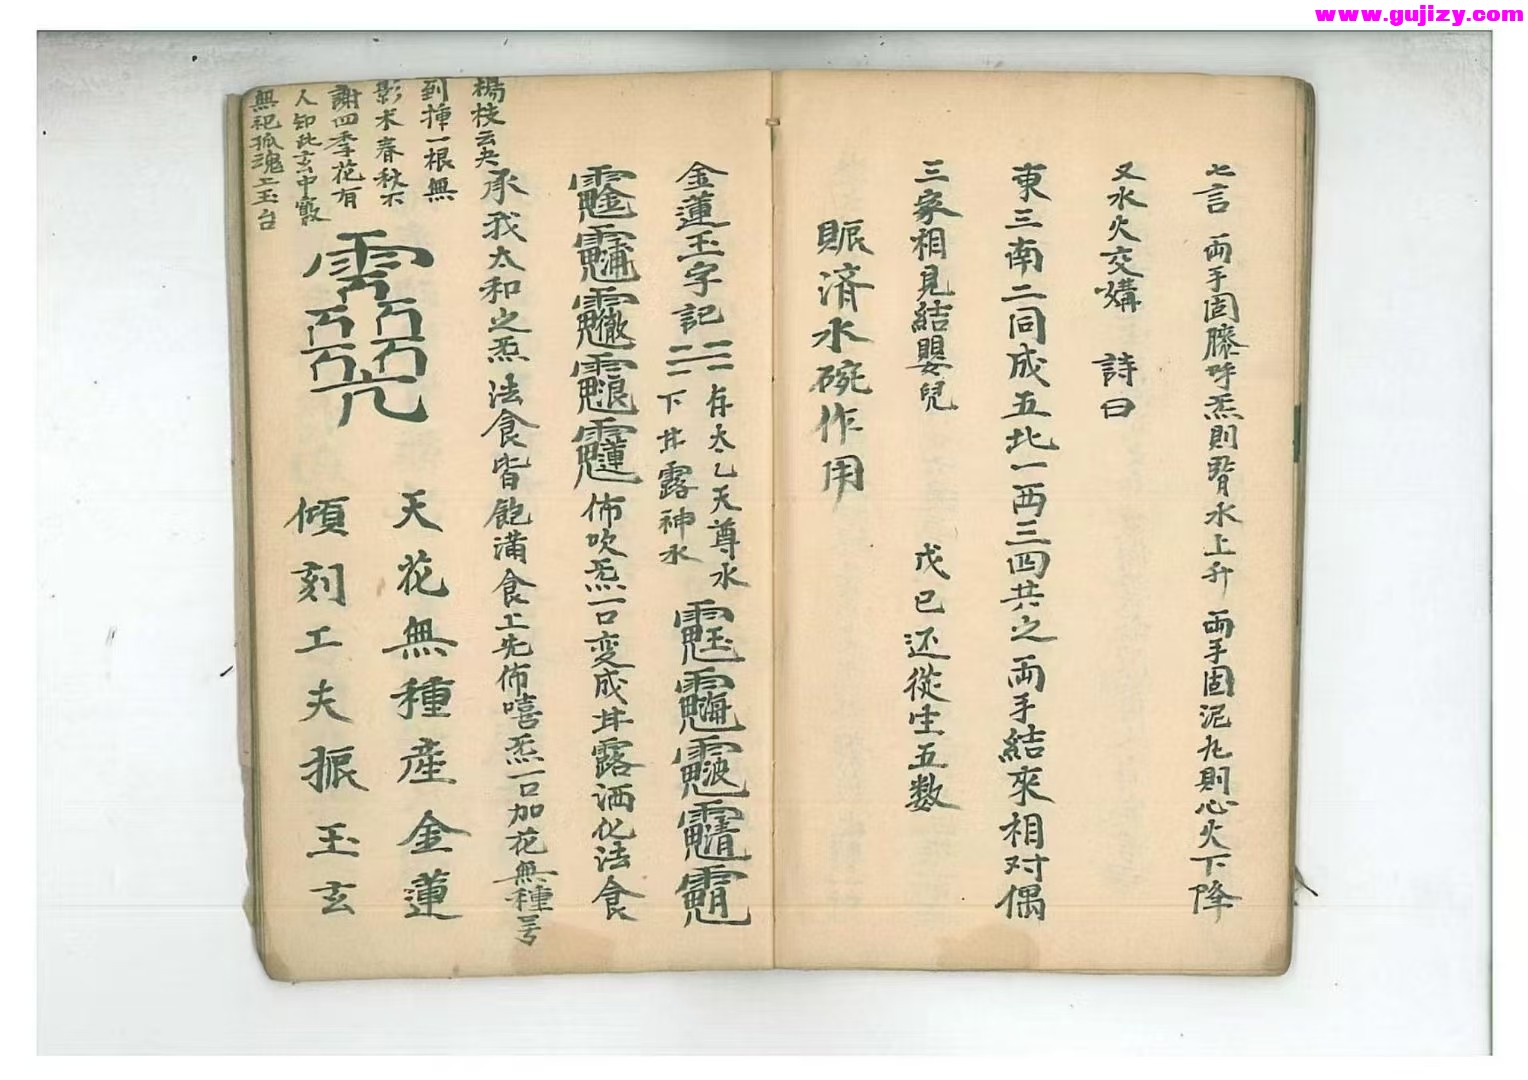 www.gujizy.com
七言 兩手固膝呼炁則腎水上升 兩手固泥丸則心火下降
又水火交媾 詩曰
東三南二同成五北一西三四共之兩手結來相对偶
三家相見結嬰兒 戊已还從生五数
賑济水碗作用
金蓮玉字記
存太乙天尊水
下甘露神水
佈吹炁一口変成甘露洒化法食
承我太和之炁法食皆飽滿食工先佈嘻炁一口加花無種
天花無種産金蓮
傾刻工夫振玉玄
楊枝云夫
到揷一根無
影末春秋不
謝四季花有
人知此玄中竅
無祀孤魂工玉台